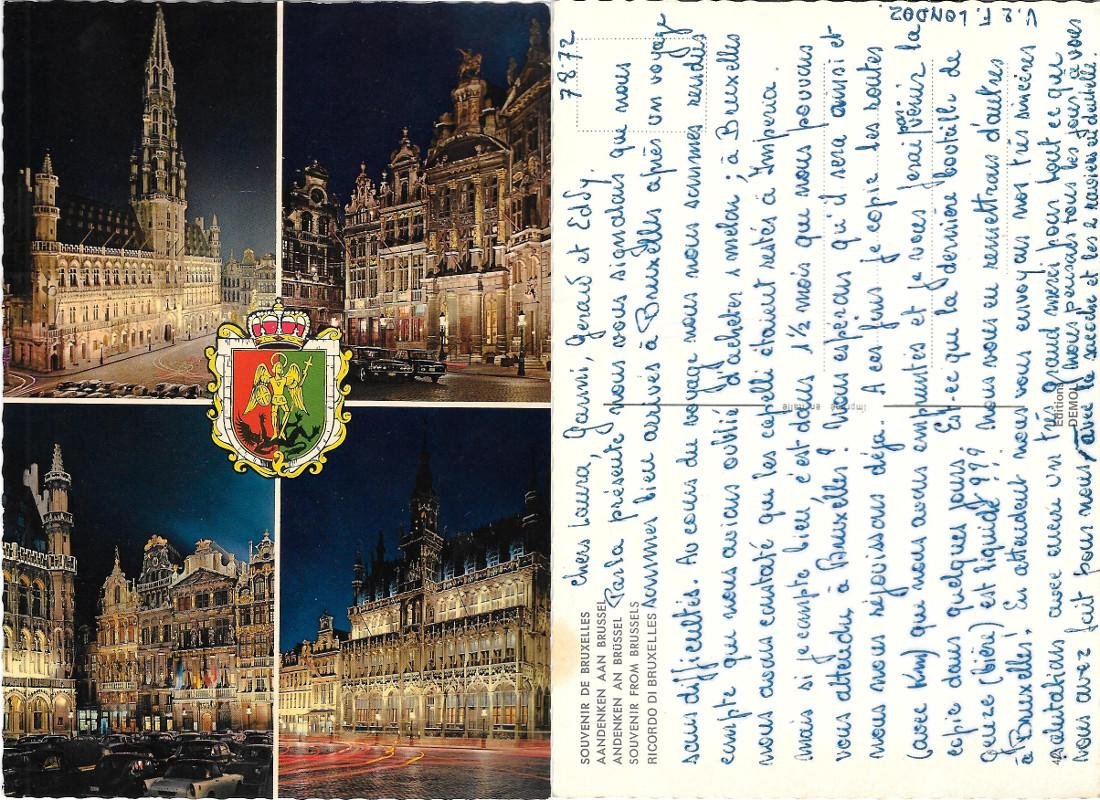 7.8.72
V. & F. LONDOZ.
SOUVENIR DE BRUXELLES
AANDENKEN AAN BRUSSEL
ANDENKEN AN BRÜSSEL
SOUVENIR FROM BRUSSELS
RICORDO DI BRUXELLES
Imprimé en Italie
Edition
DEMOL
chers Laura, Gianni, Gerard et Eddy.
Par la présente nous vous signalons que nous
sommes bien arrivés à Bruxelles après un voyage
sans difficultés. Au cours du voyage nous nous sommes rendus
compte que nous avions oublié d'acheter 1 melon; à Bruxelles
nous avons constaté que les capelli étaient restés à Imperia.
mais si je compte bien c'est dans 1 1/2 mois que nous pouvons
vous attendre à Bruxelles? Nous espérons qu'il sera ainsi et
nous nous réjouissons déja. A ces fins je copie les routes
(avec Km) que nous avons empruntés et je vous ferai par-
venir la
copie dans quelques jours. Est-ce que la dernière bouteille de
Gueuze (bière) est liquidé??? Nous vous en remettrons d'autres
à Bruxelles! En attendant nous vous envoyons nos très sincères
salutations avec encore un très grand merci pour tout ce que
vous avez fait pour nous, nous pensons tous les jours à vous
avec le secchi et les 2 navires et dentelle.